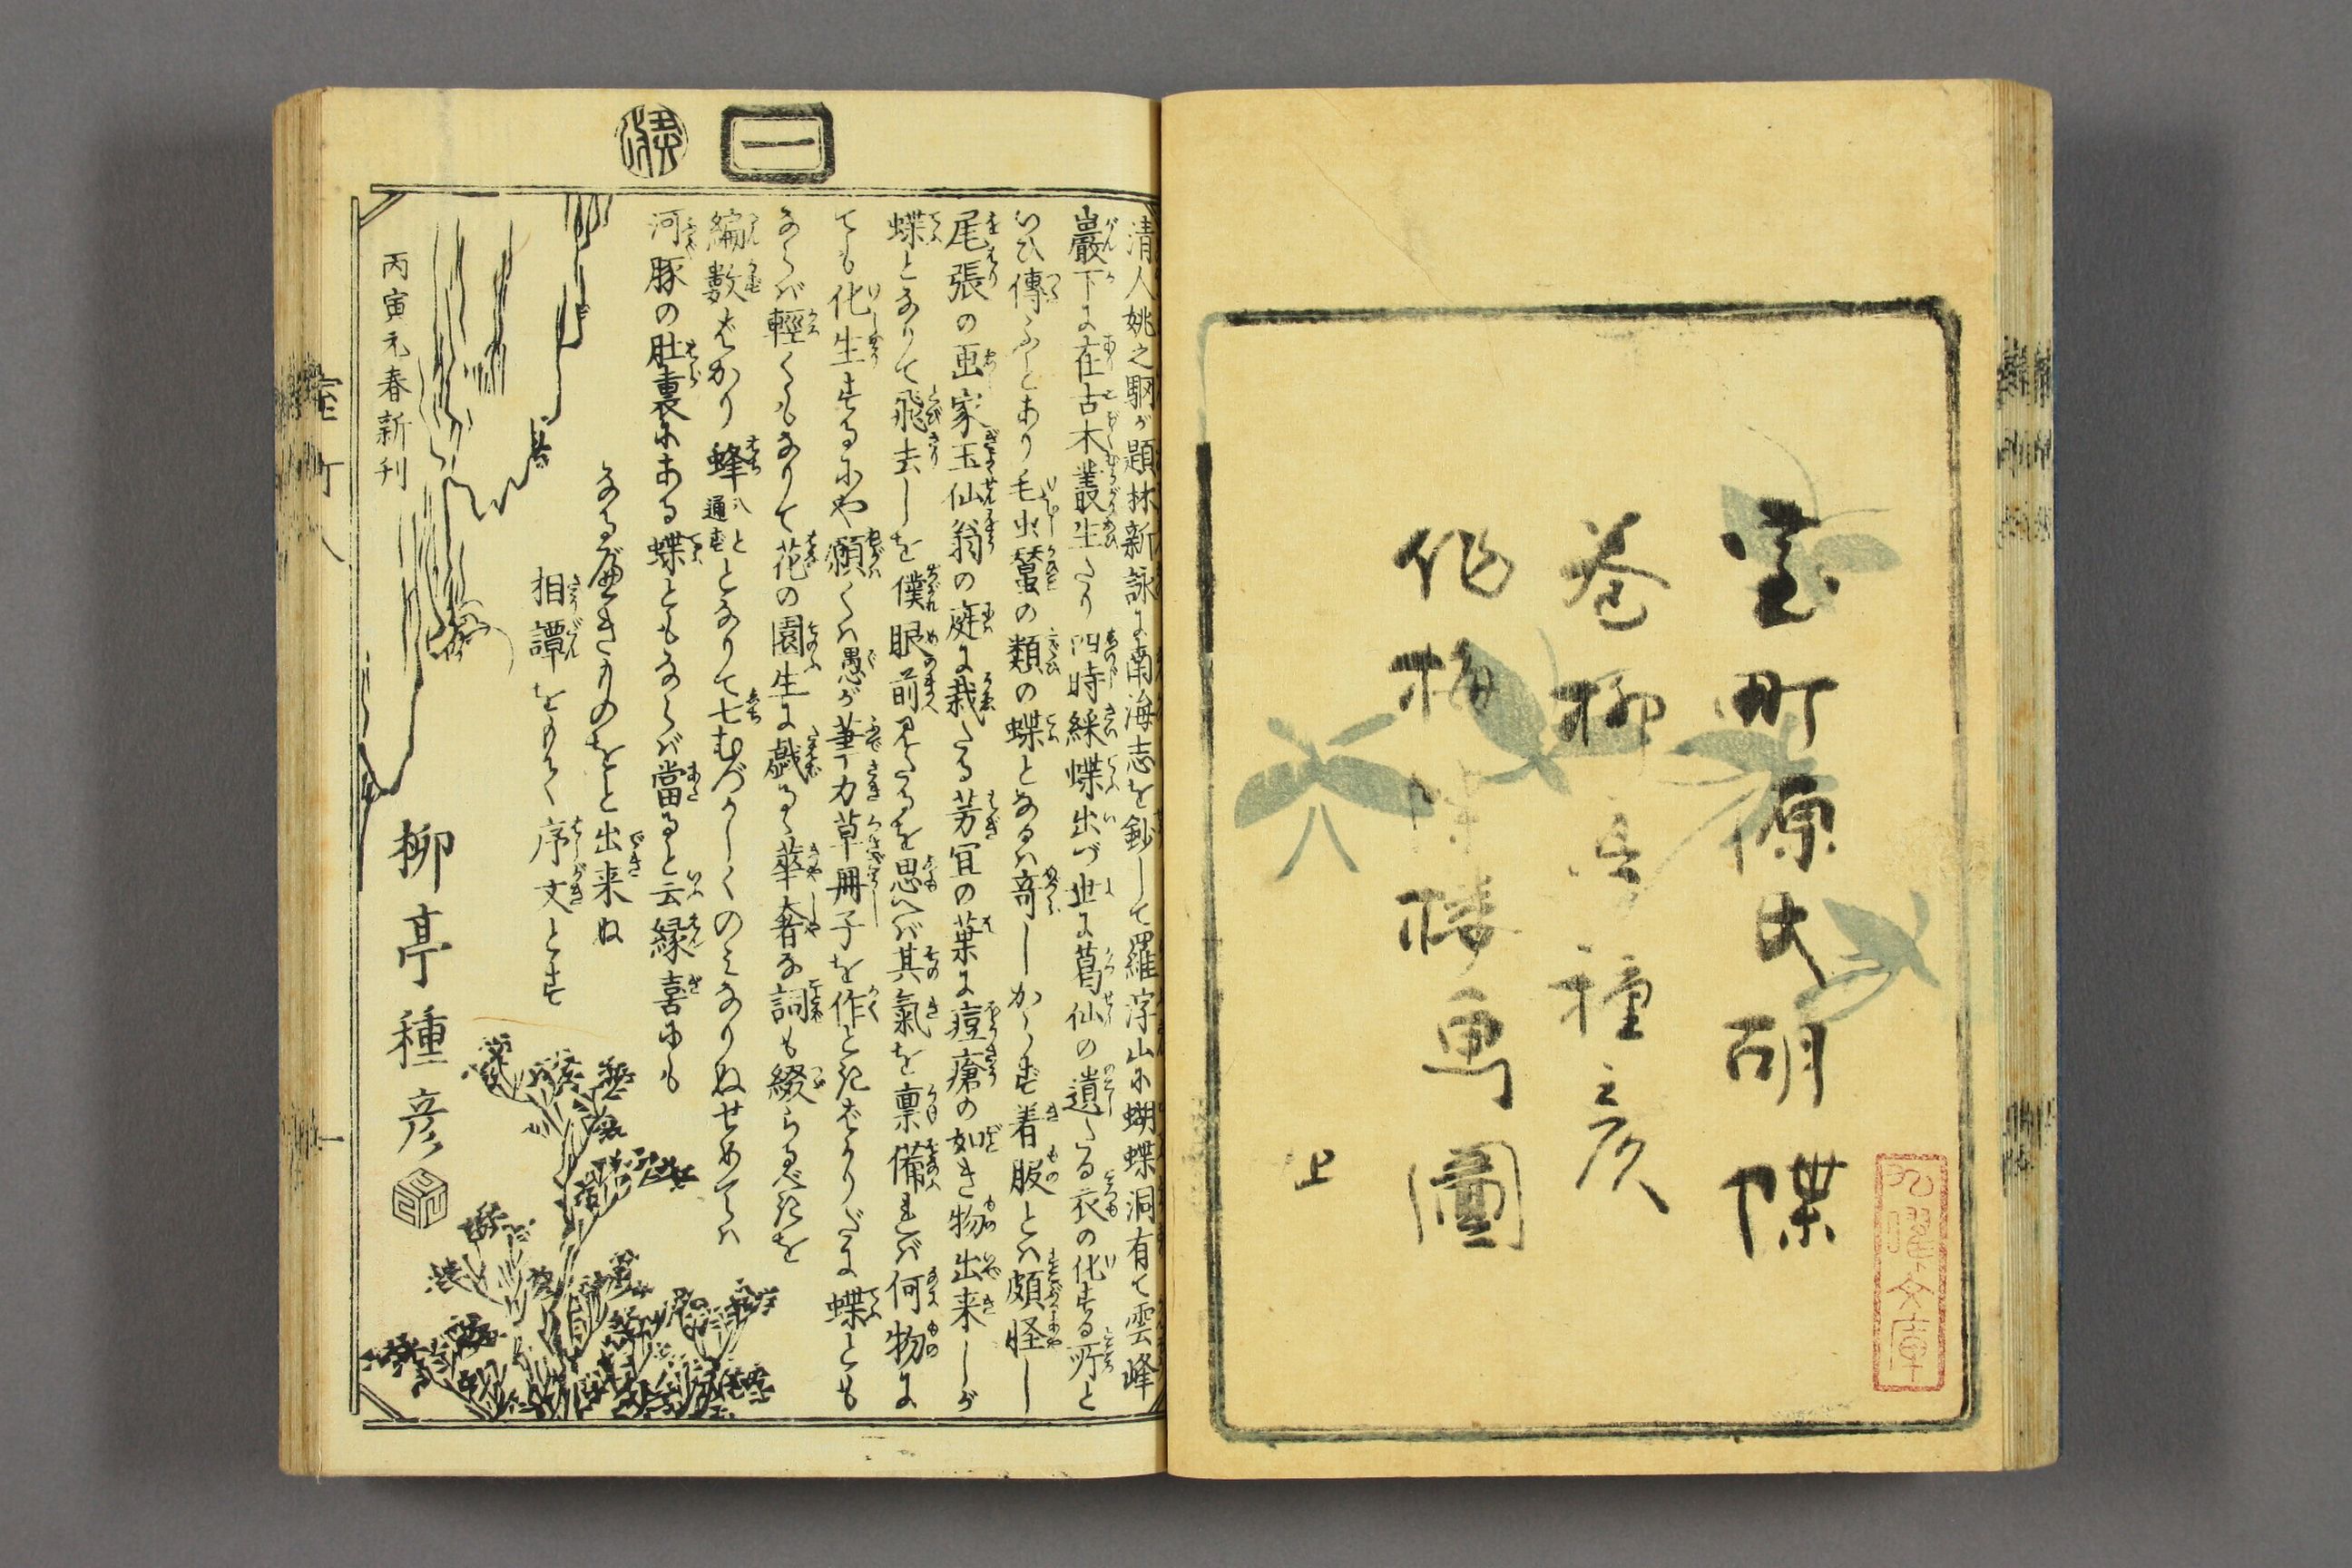 室町源氏胡蝶
巻柳亭種彦
作梅蝶楼画圖
上
九曜文庫
一
清人姚之駰が題林新詠に南海志を鈔して羅浮山に蝴蝶洞有て雲峰
巖下に在古木叢生たり四時綵蝶出づ世に葛仙の遺たる衣の化する所と
いひ傳ふとあり毛虫蠶の類の蝶となるハ奇しからず着服とハ頗怪し
尾張の画家玉仙翁の庭に栽たる芳宜の葉に痘瘡の如き物出来しが
蝶となりて飛去しを僕眼前見たるを思へバ其氣を禀備れバ何物に
ても化生するにや願くハ愚が筆力草冊子を作ときばかりだに蝶とも
ならバ輕くもなりて花の園生に戯るゝ華奢な詞も綴らるべきを
編數ばかり蜂八と通ずとなりて七むづかしくのみなりぬせめてハ
河豚の肚裏にある蝶ともならバ當ると云縁喜にも
なるべきものをと出来ぬ
相譚をもて序文とす
丙寅元春新刊
柳亭種彦
室町八
一